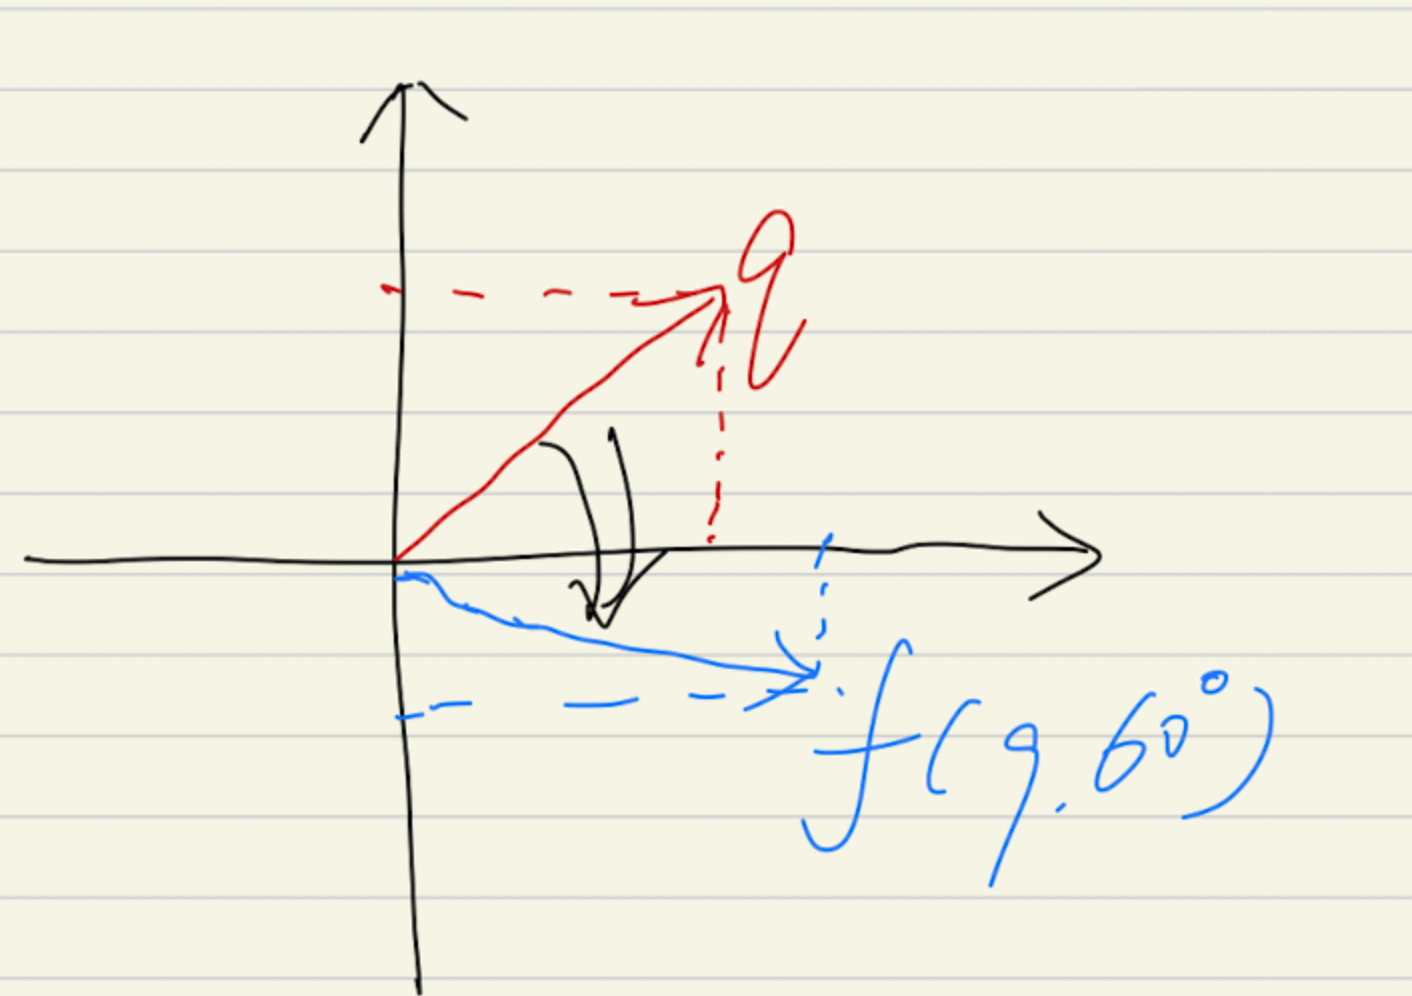 q
f(q,60°)